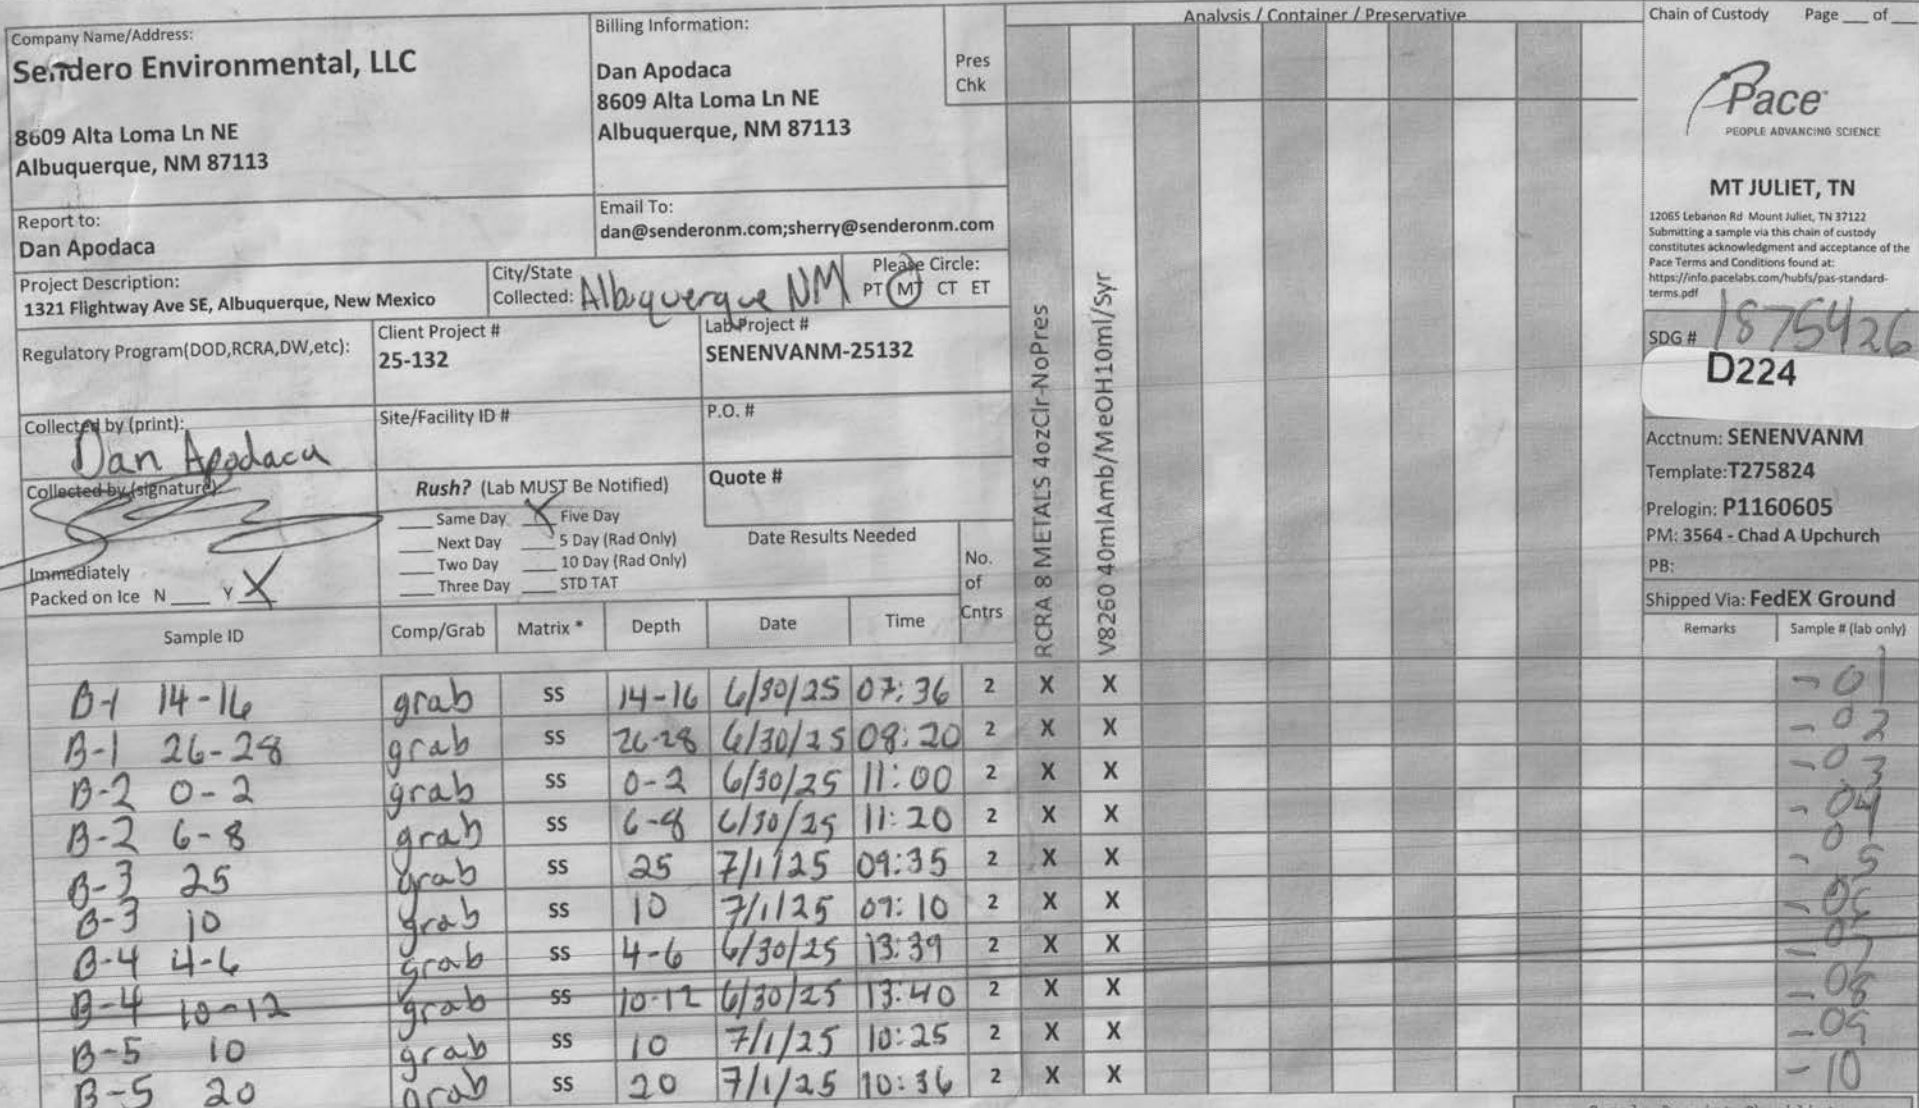 Company Name/Address:
Sendero Environmental, LLC
8609 Alta Loma Ln NE
Albuquerque, NM 87113
Billing Information:
Dan Apodaca
8609 Alta Loma Ln NE
Albuquerque, NM 87113
Pres
Chk
Analysis / Container / Preservative
Chain of Custody Page ___ of ___
Pace
PEOPLE ADVANCING SCIENCE
MT JULIET, TN
12065 Lebanon Rd Mount Juliet, TN 37122
Submitting a sample via this chain of custody
constitutes acknowledgment and acceptance of the
Pace Terms and Conditions found at:
https://info.pacelabs.com/hubfs/pas-standard-
terms.pdf
Report to:
Dan Apodaca
Email To:
dan@senderonm.com;sherry@senderonm.com
Project Description:
1321 Flightway Ave SE, Albuquerque, New Mexico
City/State
Collected: Albuquerque NM
Please Circle:
PT MT CT ET
Regulatory Program(DOD,RCRA,DW,etc):
Client Project #
25-132
Lab Project #
SENENVANM-25132
Collected by (print):
Dan Apodaca
Site/Facility ID #
P.O. #
Collected by (signature):
Rush? (Lab MUST Be Notified)
___ Same Day X Five Day
___ Next Day ___ 5 Day (Rad Only)
___ Two Day ___ 10 Day (Rad Only)
___ Three Day ___ STD TAT
Quote #
Date Results Needed
Immediately
Packed on Ice N ___ Y X
No.
of
Cntrs
RCRA 8 METALS 4ozClr-NoPres
V8260 40mlAmb/MeOH10ml/Syr
SDG # 1875426
D224
Acctnum: SENENVANM
Template:T275824
Prelogin: P1160605
PM: 3564 - Chad A Upchurch
PB:
Shipped Via: FedEX Ground
Sample ID Comp/Grab Matrix * Depth Date Time Remarks Sample # (lab only)
B-1 14-16 grab SS 14-16 6/30/25 07:36 2 X X -01
B-1 26-28 grab SS 26-28 6/30/25 08:20 2 X X -02
B-2 0-2 grab SS 0-2 6/30/25 11:00 2 X X -03
B-2 6-8 grab SS 6-8 6/30/25 11:20 2 X X -04
B-3 25 grab SS 25 7/1/25 09:35 2 X X -05
B-3 10 grab SS 10 7/1/25 09:10 2 X X -06
B-4 4-6 grab SS 4-6 6/30/25 13:39 2 X X -07
B-4 10-12 grab SS 10-12 6/30/25 13:40 2 X X -08
B-5 10 grab SS 10 7/1/25 10:25 2 X X -09
B-5 20 grab SS 20 7/1/25 10:36 2 X X -10